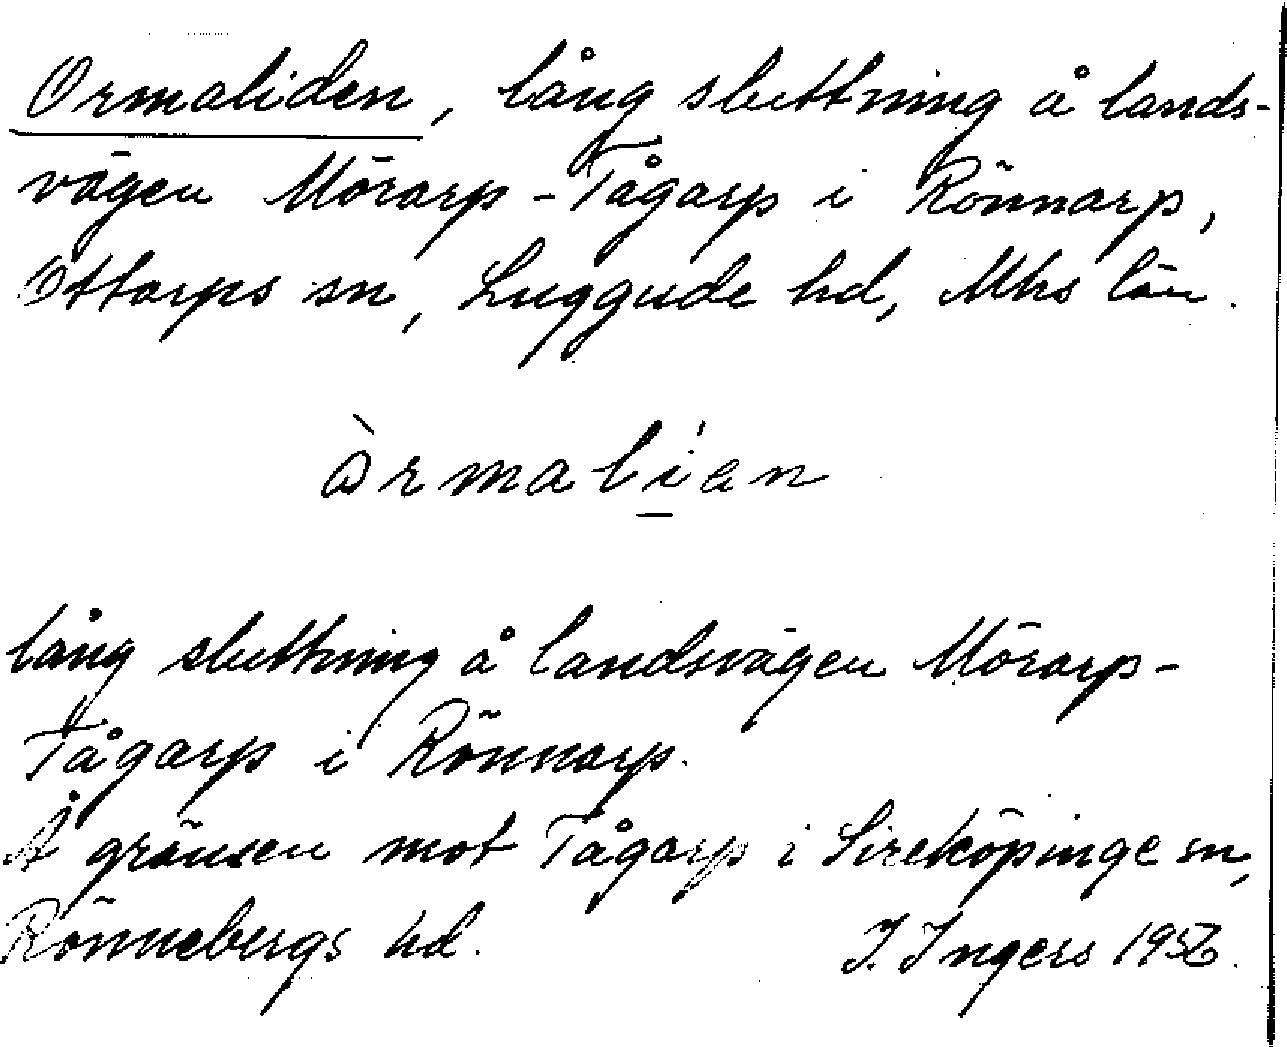 Ormaliden, lång sluttning å lands-
vägen Mörarp-Tågarp i Rönnarp,
Ottarps sn, Luggude hd, Mhs län.
òrmalíen
lång sluttning å landsvägen Mörarp-
Tågarp i Rönnarp.
Å gränsen mot Tågarp i Sireköpinge sn,
Rönnebergs hd.
I. Ingers 1956.